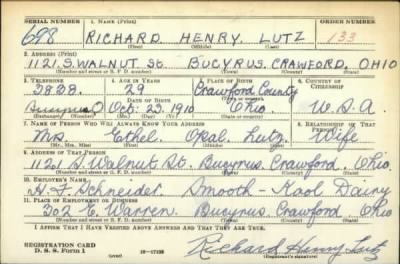 SERIAL NUMBER 1. NAME (Print) ORDER NUMBER
698 RICHARD HENRY LUTZ 133
(First) (Middle) (Last)
2. ADDRESS (Print)
1121 S. WALNUT St. BUCYRUS, CRAWFORD, OHIO
(Number and street or R. F. D. number) (Town) (County) (State)
3. TELEPHONE 4. AGE IN YEARS 5. PLACE OF BIRTH 6. COUNTRY OF CITIZENSHIP
3828. 29 Crawford County
DATE OF BIRTH (Town or county)
Bucyrus O Oct. 23, 1910 Ohio. U.S.A
(Exchange) (Number) (Mo.) (Day) (Yr.) (State or country)
7. NAME OF PERSON WHO WILL ALWAYS KNOW YOUR ADDRESS 8. RELATIONSHIP OF THAT PERSON
Mrs. Ethel Opal Lutz Wife
(Mr., Mrs., Miss) (First) (Middle) (Last)
9. ADDRESS OF THAT PERSON
1121 S. Walnut St. Bucyrus, Crawford, Ohio.
(Number and street or R. F. D. number) (Town) (County) (State)
10. EMPLOYER'S NAME
H F Schneider Smooth-Kool Dairy
11. PLACE OF EMPLOYMENT OR BUSINESS
302 E. Warren. Bucyrus Crawford Ohio
(Number and street or R. F. D. number) (Town) (County) (State)
I AFFIRM THAT I HAVE VERIFIED ABOVE ANSWERS AND THAT THEY ARE TRUE.
REGISTRATION CARD
D. S. S. Form 1 (over) 16-17105 Richard Henry Lutz
(Registrant's signature)